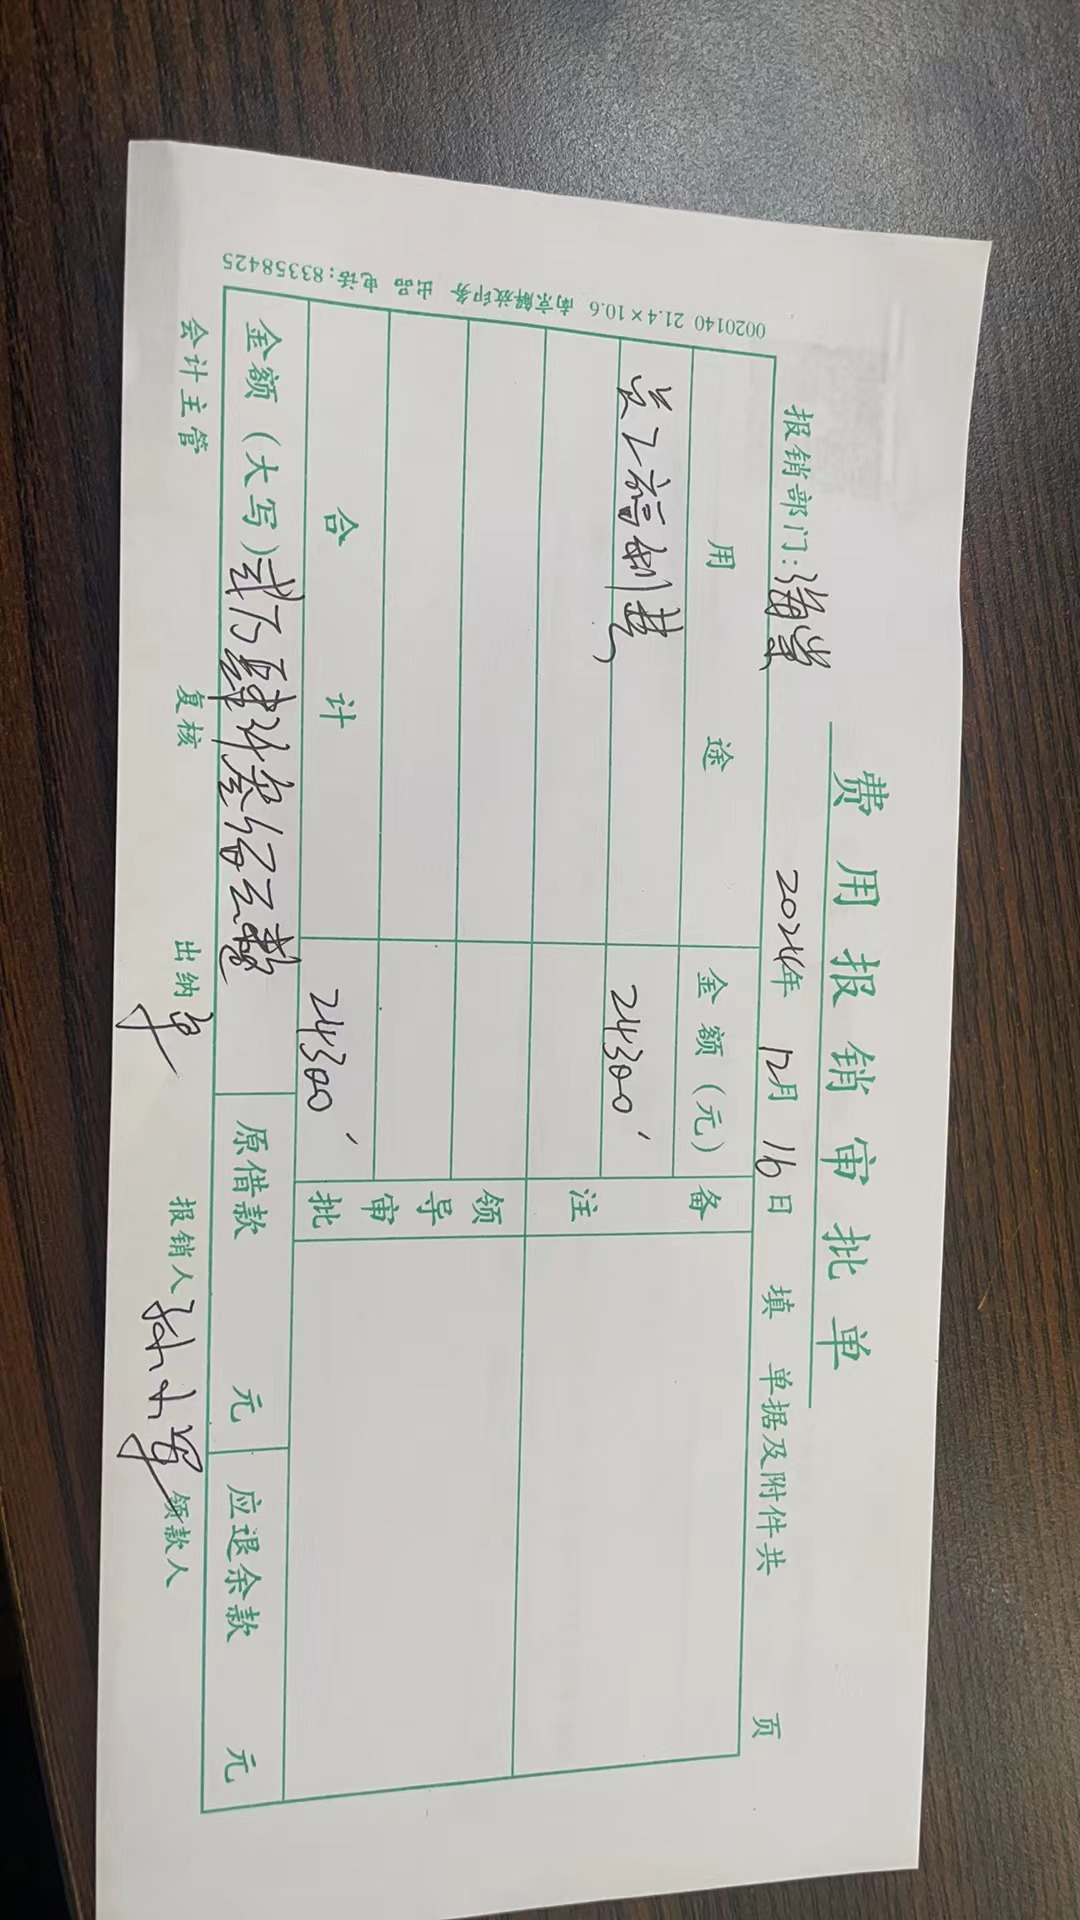 费用报销审批单
报销部门:海棠 2024年 12月 16日 填 单据及附件共 页
用途 金额(元) 备注
员工福利费 24300
领导审批
合计 24300
金额(大写)贰万肆仟叁佰元整 原借款 元 应退余款 元
会计主管 复核 出纳 报销人 领款人
0020140 21.4×10.6 南京解放印务 出品 电话:83358425